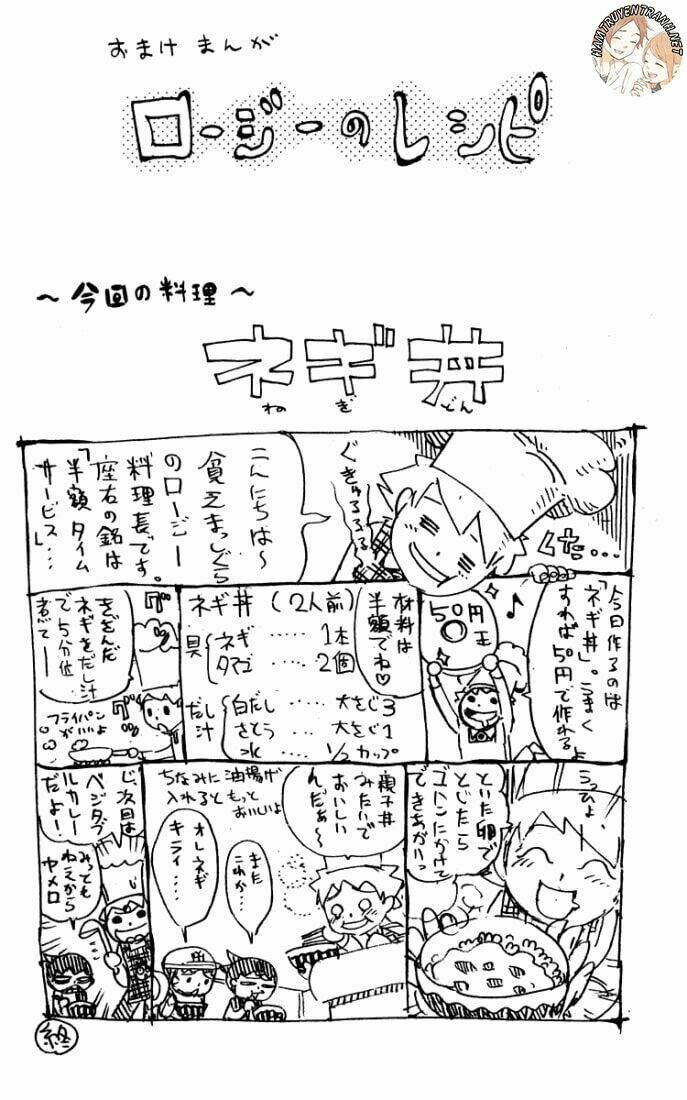 おまけまんが
ロージーのレシピ
～今回の料理～
ネギ丼
ねぎどん
ぐきゅるるるる
こんにちは～
貧乏まっしぐら
のロージー
料理長です。
座右の銘は
「半額タイム
サービス」…
くた…
今日作るのは
「ネギ丼」。うまく
すれば50円で作れるよ
うっひょ、
50円
玉
♪
材料は
半額でね♡
ネギ丼（2人前）
具
ネギ……1本
タマゴ……2個
だし汁
白だし……大さじ3
さとう……大さじ1
水……1/2カップ
きざんだ
ネギをだし汁
で5分位
煮て――
グツ
グツ
フライパン
がいいよ
といた卵で
とじたら
ゴハンにかけて
できあがりっ
親子丼
みたいで
おいしい
んだぁ～
ちなみに油揚げ
入れるともっと
おいしいよ
また
これか…
オレネギ
キライ…
じ、次回は
ベジタブ
ルカレー
だよ!
みっとも
ねえから
ヤメロ
終
HAMTRUYENTRANH.NET